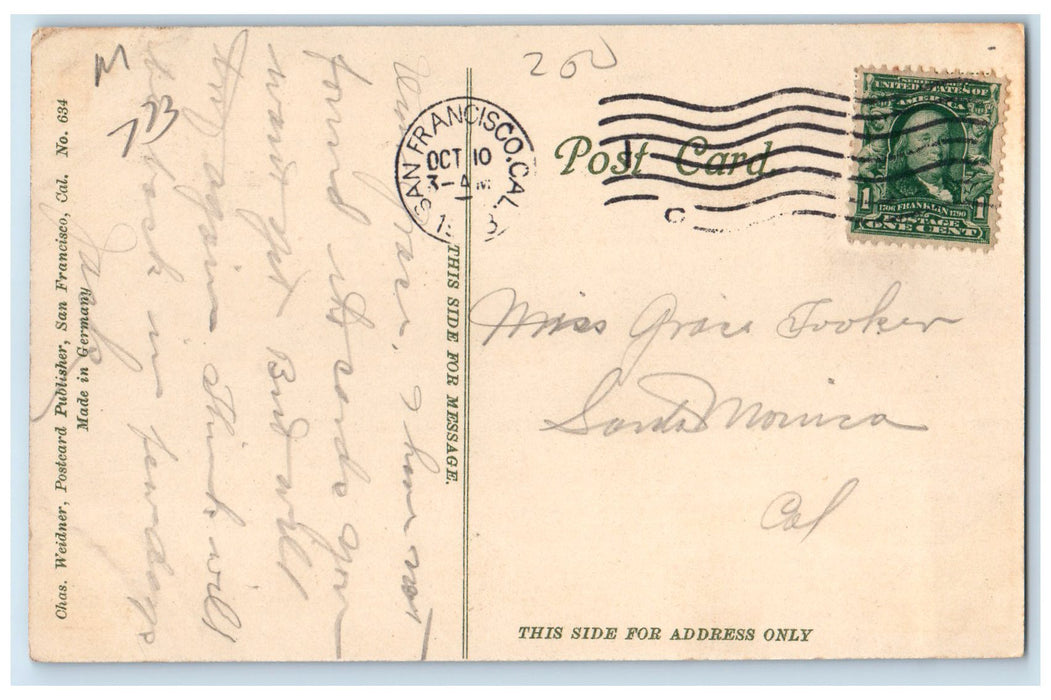 M
773
200
Post Card
SAN FRANCISCO, CAL.
OCT 10
3- AM
SERIES 1902
UNITED STATES OF
AMERICA
1 1
1706 FRANKLIN 1790
POSTAGE
ONE CENT
Dear Grace. I have not
found it to send you
want yet But will
try again. Think will
be back in few days
Jack
THIS SIDE FOR MESSAGE.
Miss Grace Tooker
Santa Monica
Cal
THIS SIDE FOR ADDRESS ONLY
Chas. Weidner, Postcard Publisher, San Francisco, Cal. No. 634
Made in Germany